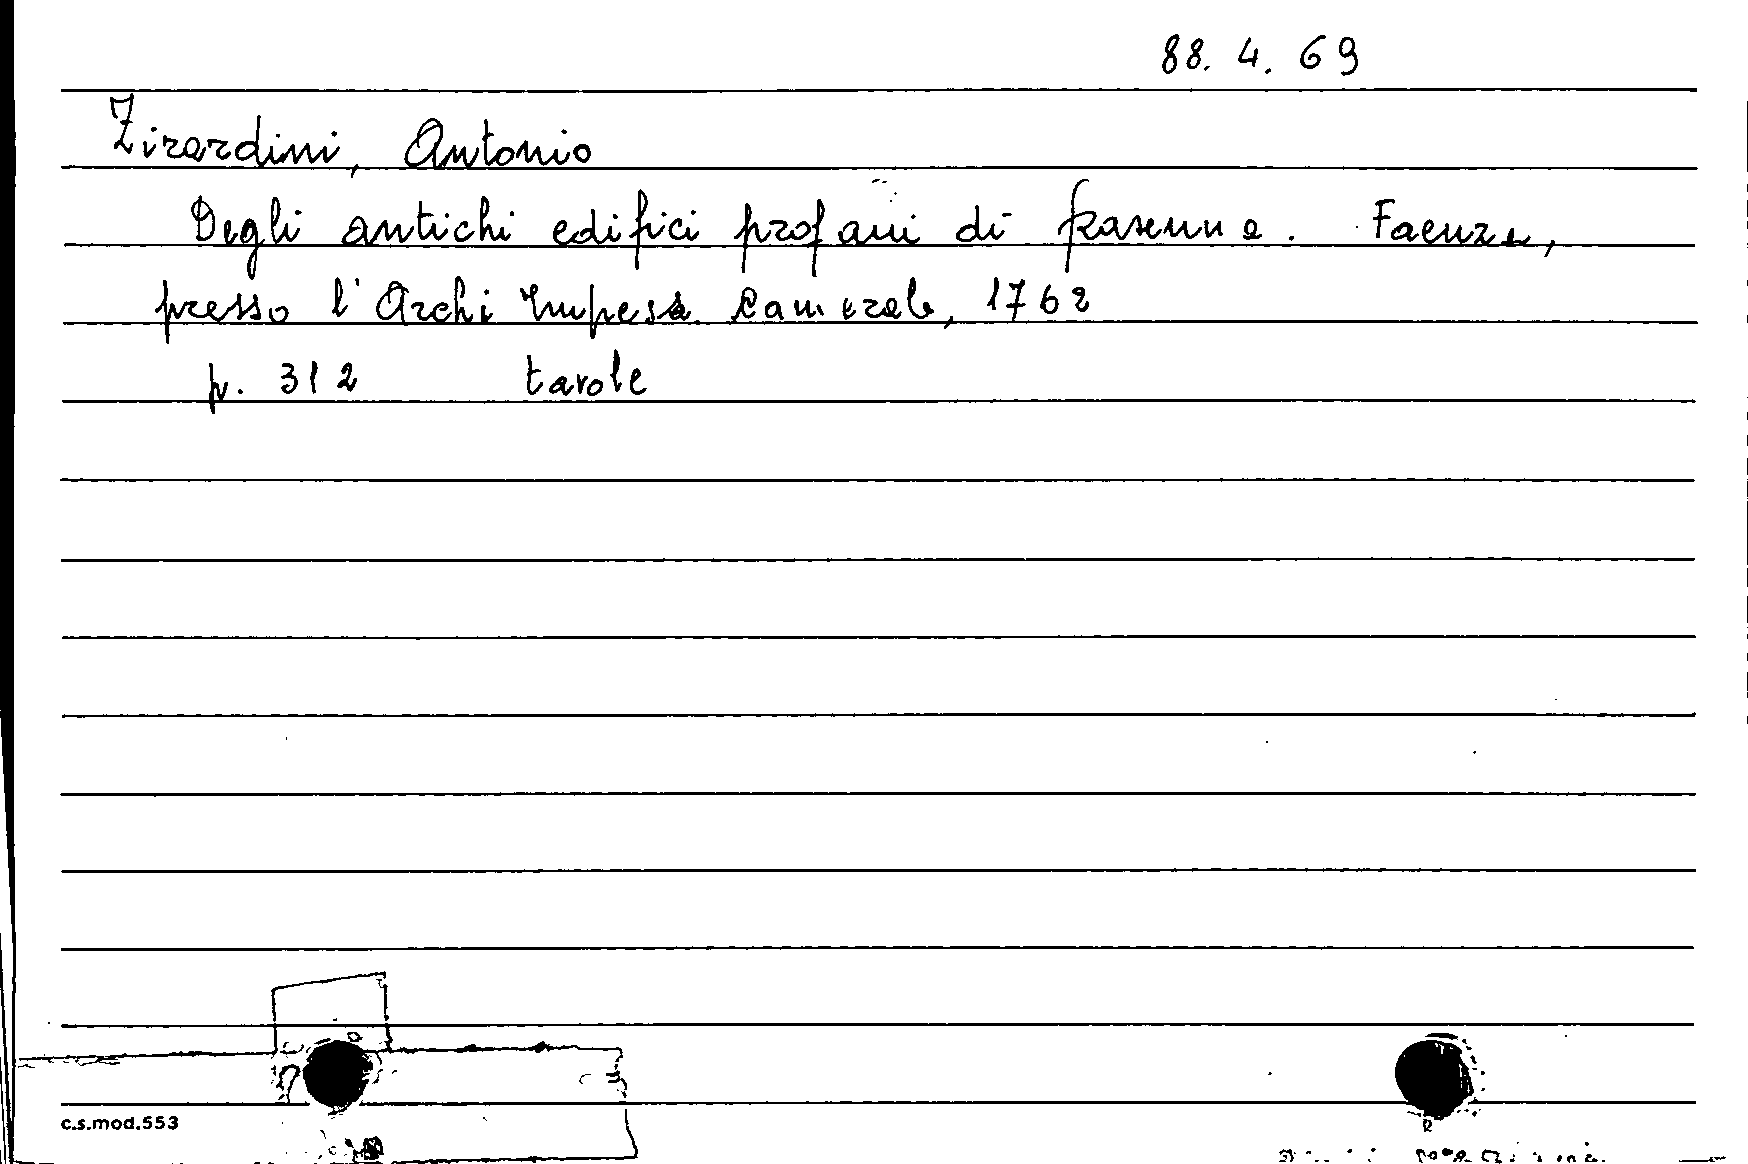 88. 4. 69
Zirardini, Antonio
Degli antichi edifici profani di Ravenna. Faenza,
presso l'Archi Impess. Camerale, 1762
p. 312 tavole
c.s.mod.553